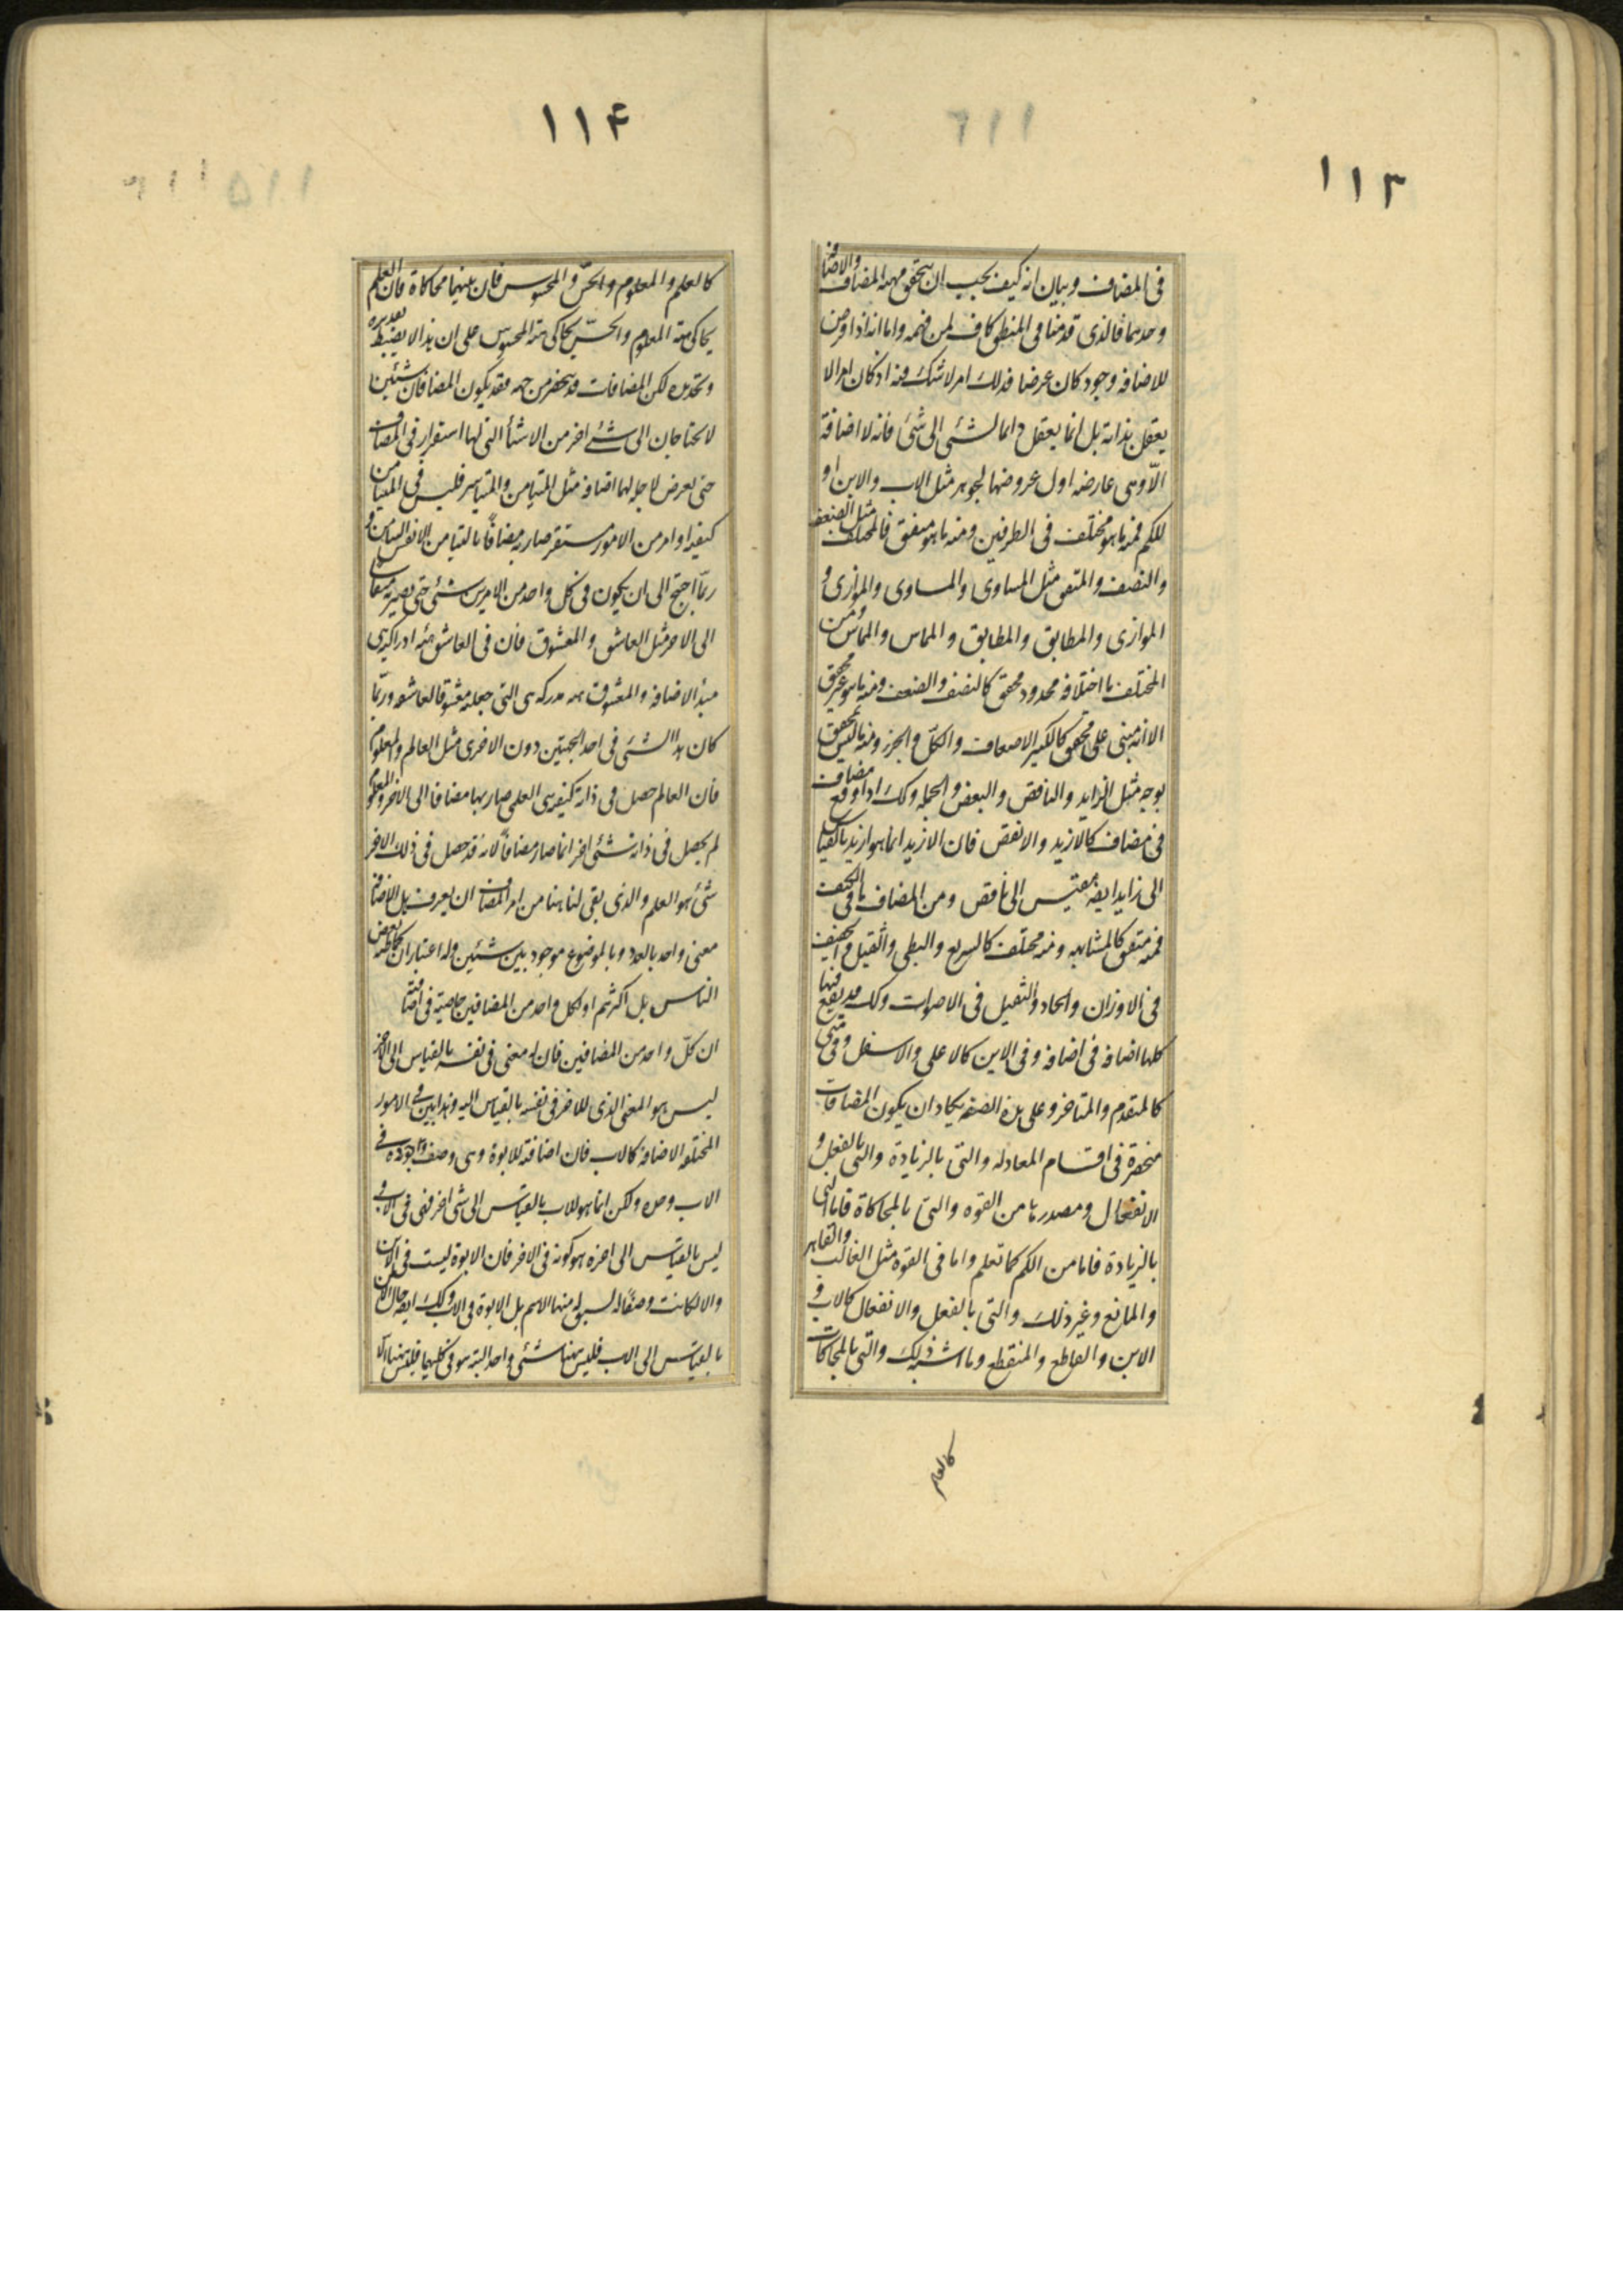 ١١٣
فى المضاف وبيان انه كيف يجب ان يتحقق مهية المضاف والاضافة
وحدهما فالذى قدمنا فى المنطق كاف لمن فهمه واما انه اذا فرض
للاضافة وجود كان عرضا فذلك امر لا شك فيه اذ كان امرا لا
يعقل بذاته بل انما يعقل دائما لشئ الى شئ فانه لا اضافة
الّا وهى عارضه اول عروضها للجوهر مثل الاب والابن او
للكم فمنه ما هو مختلف فى الطرفين ومنه ما هو متفق فالمختلف مثل الضعف
والنصف والمتفق مثل المساوى والمساوى والموازى و
الموازى والمطابق والمطابق والمماس والمماس ومن
المختلف ما اختلافه محدود محقق كالنصف والضعف ومنه ما هو غير محقق
الا انه مبنى على محقق كالكثير الاضعاف والكلّ والجزء ومنه ما ليس بمحقق
بوجه مثل الزايد والناقص والبعض والجملة وكك اذا وقع مضاف
فى مضاف كالازيد والانقص فان الازيد انما هو ازيد بالقياس
الى زايد ايضه مقيس الى ناقص ومن المضاف ما فى الكيف
فمنه متفق كالمشابهه ومنه مختلف كالسريع والبطى والثقيل والخفيف
فى الاوزان والحاد والثقيل فى الاصوات وكك قد يقع فيها
كلها اضافه فى اضافه وفى الاين كالاعلى والاسفل وفى متى
كالمتقدم والمتاخر وعلى هذه الصفه يكاد ان يكون المضافات
منحصرة فى اقسام المعادله والتى بالزيادة والتى بالفعل و
الانفعال ومصدرها من القوه والتى بالمحاكاة فاما التى
بالزيادة فاما من الكم كما تعلم واما فى القوة مثل الغالب والقاهر
والمانع وغير ذلك والتى بالفعل والانفعال كالاب و
الابن والقاطع والمنقطع وما اشبه ذلك والتى بالمحاكات
كالعلم
١١۴
كالعلم والمعلوم والحسّ والمحسوس فان بينهما محاكاة فان العلم
يحاكى هيئة المعلوم والحسّ يحاكى هيئة المحسوس على ان هذا لا يضبط تقديره
وتحديده لكن المضافات قد ينحصر من جهه فقد يكون المضافان شيئين
لا يحتاجان الى شئ اخر من الاشيأ التى لها استقرار فى المضاف
حتى يعرض لاجله لهما اضافه مثل المتيامن والمتياسر فليس فى المتيامن
كيفيه او امر من الامور مستقر صار به مضافًا بالتيامن الا نفس التيامن و
ربّما احتيج الى ان يكون فى كل واحد من الامرين شئ حتى يصير به مضافا
الى الاخر مثل العاشق والمعشوق فان فى العاشق هيئه ادراكيه هى
مبدأ الاضافه والمعشوق هيئه مدركه هى التى جعلته معشوقا لعاشقه وربّما
كان هذا الشئ فى احد الجهتين دون الاخرى مثل العالم والمعلوم
فان العالم حصل فى ذاته كيفيه هى العلم صار بها مضافا الى الاخر والمعلوم
لم يحصل فى ذاته شئ اخر انما صار مضافًا لانه قد حصل فى ذلك الاخر
شئ هو العلم والذى بقى لنا هنا من امر المضاف ان يعرف هل الاضافة
معنى واحد بالعدد وبالموضوع موجود بين شيئين وله اعتباران كما ظنه بعض
الناس بل اكثرهم او لكل واحد من المضافين خاصية فى اضافته
ان كلّ واحد من المضافين فان له معنى فى نفسه بالقياس الى الاخر
ليس هو المعنى الذى للاخر فى نفسه بالقياس اليه وهذا بين فى الامور
المختلفه الاضافة كالاب فان اضافته للابوة وهى وصف وجوده فى
الاب وحده ولكن انما هو للاب بالقياس الى شئ اخر فهى فى الاب و
ليس بالقياس الى اخره هو كونه فى الاخر فان الابوة ليست فى الابن
والا لكانت وصفًا له يسبق له منها الاسم بل الابوة فى الاب وكك ايضه حال الابن
بالقياس الى الاب فليس هنا شئ واحد البته هو فى كليهما فليس هنا الّا